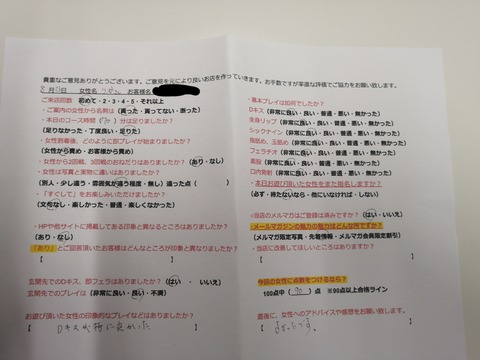 貴重なご意見ありがとうございます。ご意見を元により良いお店を作っていきます。お手数ですが率直な評価でご協力をお願い致します。
月 日 女性名 お客様名
ご来店回数 初めて・2・3・4・5・それ以上
・ご案内の女性から名刺は（貰った・貰ってない・断った）
・本日のコース時間（70）分は足りましたか？
（足りなかった・丁度良い・足りた）
・女性到着後、どのように即プレイが始まりましたか？
（女性から責め・お客様から責め）
・女性から2回戦、3回戦のおねだりはありましたか？（あり・なし）
・女性は写真と実物に違いはありましたか？
（別人・少し違う・雰囲気が違う程度・無し）違った点（ ）
・「すぐして」をお楽しみいただけましたか？
（文句なし・楽しかった・普通・楽しくなかった）
・HPや他サイトに掲載してある印象と異なるところはありましたか？
（あり・なし）
・「あり」とご回答頂いたお客様はどんなところが印象と異なりましたか？
【 】
玄関先でのDキス、即フェラはありましたか？（はい ・ いいえ）
玄関先でのプレイは（非常に良い・良い・不満）
お遊び頂いた女性の印象的なプレイなどはありましたか？
【 Dキスが特に良かった 】
・基本プレイは如何でしたか？
Dキス（非常に良い・良い・普通・悪い・無かった）
全身リップ（非常に良い・良い・普通・悪い・無かった）
シックナイン（非常に良い・良い・普通・悪い・無かった）
指舐め、玉舐め（非常に良い・良い・普通・悪い・無かった）
フェラチオ（非常に良い・良い・普通・悪い・無かった）
素股（非常に良い・良い・普通・悪い・無かった）
口内発射（非常に良い・良い・普通・悪い・無かった）
・本日お遊び頂いた女性をまた指名しますか？
（必ず・持たないなら・他にいなければ・しない）
<当店のメルマガはご登録は済みですか？（はい・いいえ）
・メールマガジンの魅力の魅力はどんな所ですか？
（メルマガ限定写真・先着情報・メルマガ会員限定割引）
・当店に改善してほしいところはありますか？
【 】
今回の女性に点数をつけるなら？
100点中（90）点 ※90点以上合格ライン
最後に、女性へのアドバイスや感想をお願い致します。
【 】